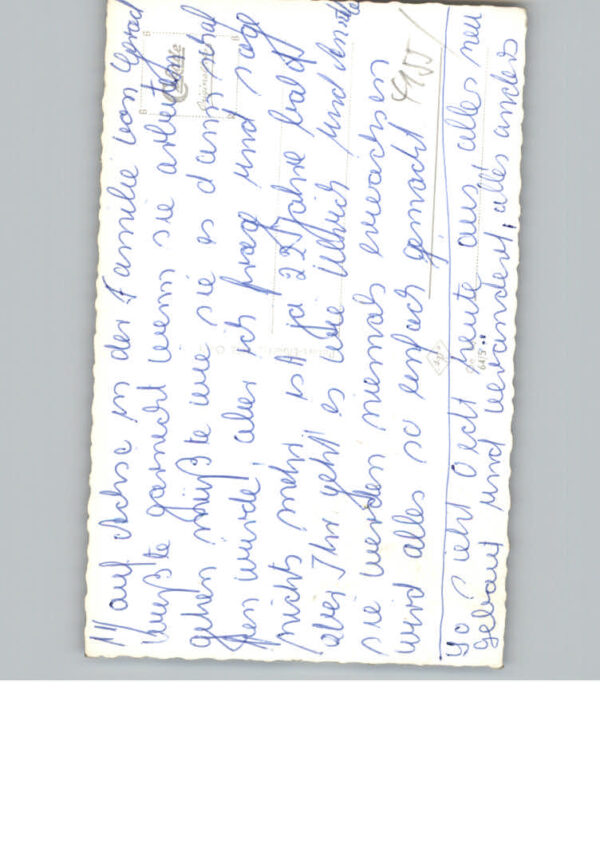 auf Achse in der Familie von
wußte garnicht wenn sie arbeiten
gehen mußte wie sie es dann schaf
fen würde, aber ich frag und sage
nichts mehr ist ja 22 Jahre bald
aber Ihr geht es wie Ullrich und
sie werden niemals erwachsen
wird alles so einfach gemacht
So sieht Oecht heute aus, alles neu
gebaut und verändert, alles anders